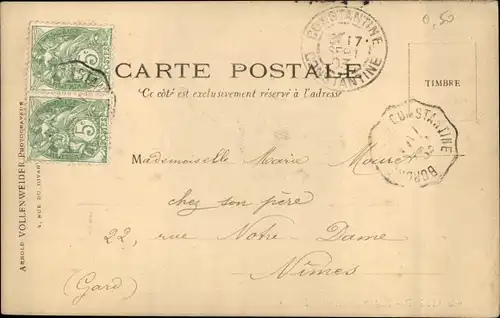 0,50
CONSTANTINE
17
CONSTANTINE
CARTE POSTALE
Ce côté est exclusivement réservé à l'adresse
TIMBRE
5
5
CONSTANTINE
Arnold VOLLENWEIDER, Photograveur
4, RUE DU DIVAN
Mademoiselle Maria
chez son père
22, rue Notre-Dame
Nîmes
(Gard)